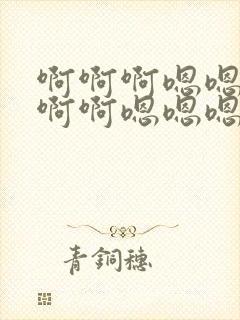 啊啊啊嗯嗯
啊啊嗯嗯嗯
青銅穗